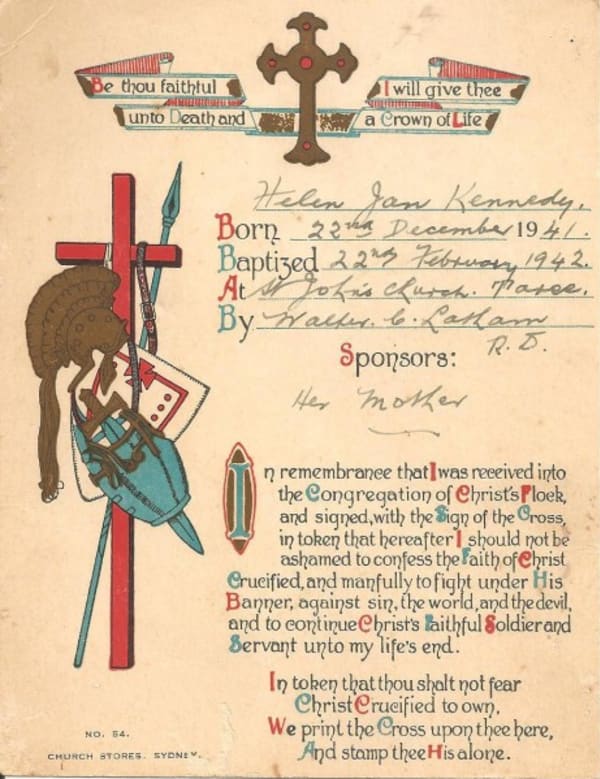 Be thou faithful
unto Death and
I will give thee
a Crown of Life
Helen Jan Kennedy.
Born 22nd December 1941.
Baptized 22nd February 1942.
At St John's Church. Taree.
By Walter. C. Latham
R. D.
Sponsors:
Her Mother
In remembrance that I was received into
the Congregation of Christ's Flock,
and signed, with the Sign of the Cross,
in token that hereafter I should not be
ashamed to confess the Faith of Christ
Crucified, and manfully to fight under His
Banner, against sin, the world, and the devil,
and to continue Christ's Faithful Soldier and
Servant unto my life's end.
In token that thou shalt not fear
Christ Crucified to own,
We print the Cross upon thee here,
And stamp thee His alone.
NO. 54.
CHURCH STORES. SYDNEY.